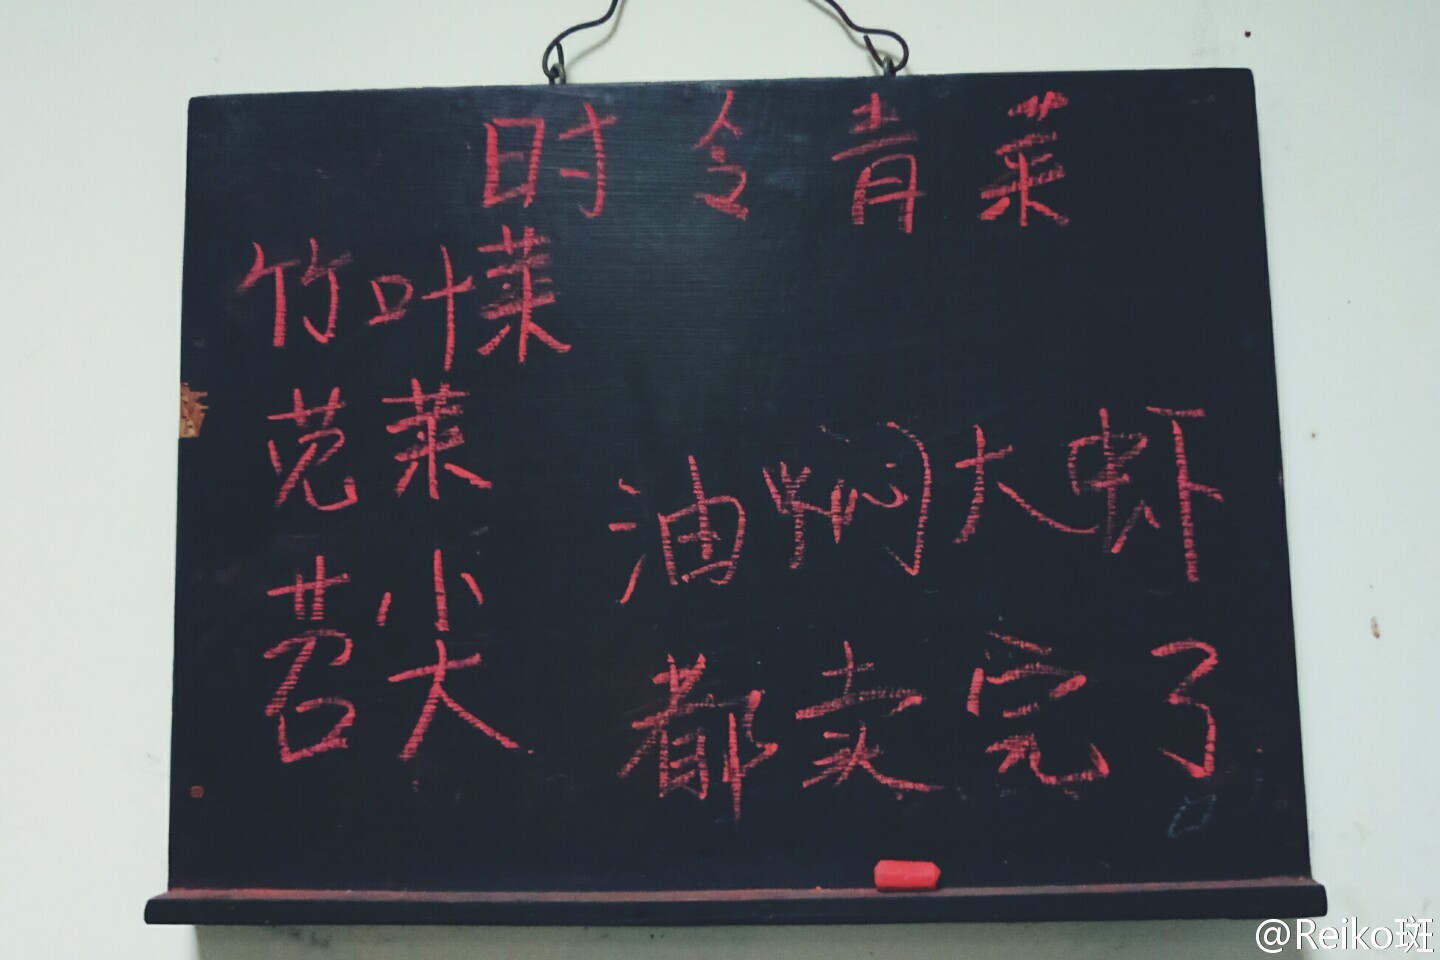 时令青菜
竹叶菜
苋菜
苕尖
油焖大虾
都卖完了
@Reiko斑